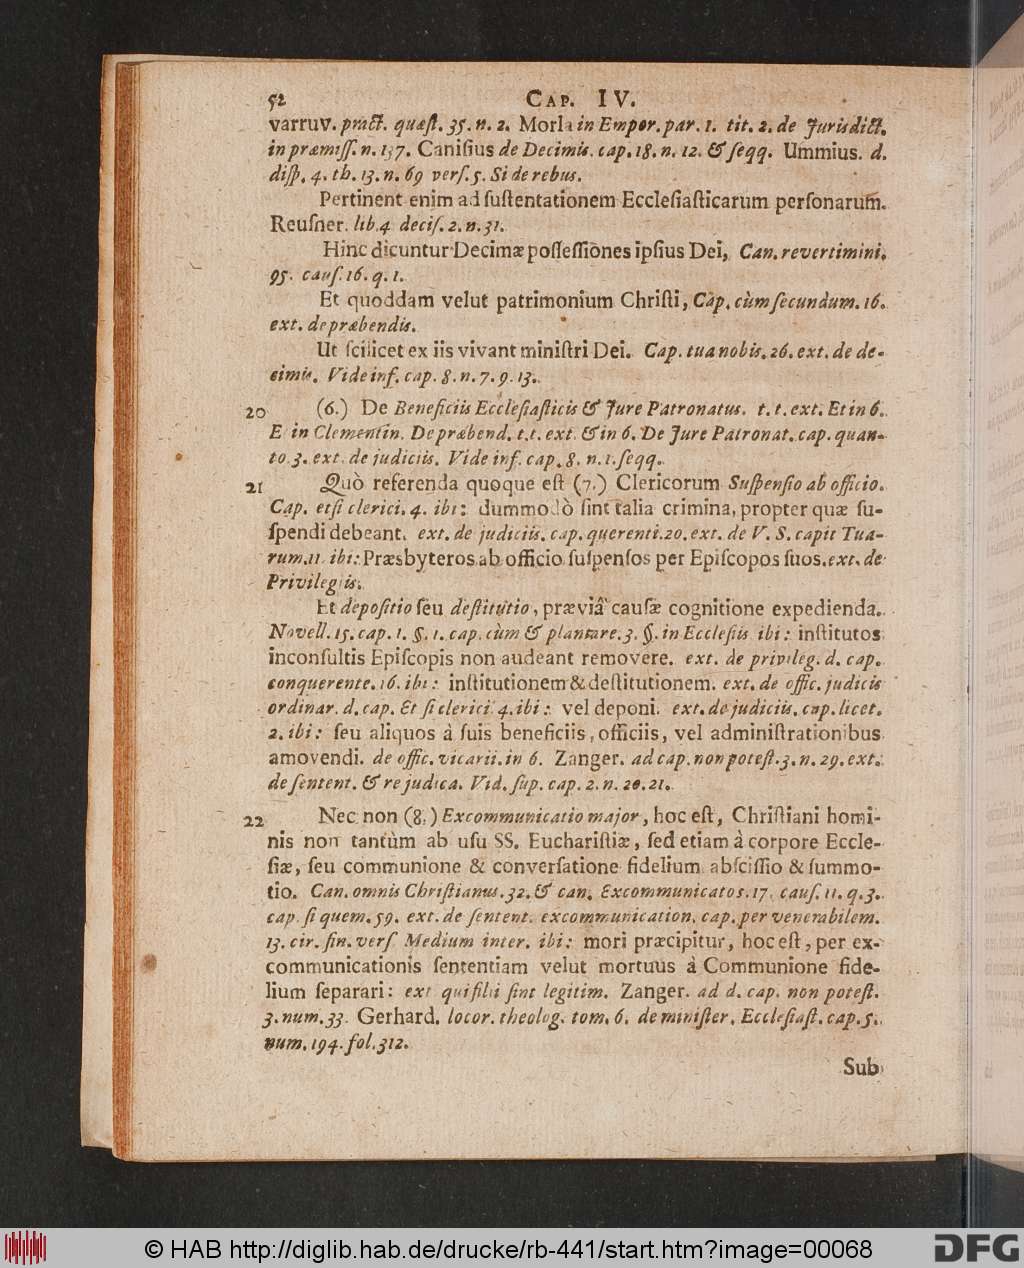 52 CAP. IV.
varruv. pract. quæſt. 35. n. 2. Morla in Empor. par. 1. tit. 2. de Jurisdict.
in præmiſſ. n. 137. Caniſius de Decimis. cap. 18. n. 12. & ſeqq. Ummius. d.
diſp. 4. th. 13. n. 69 verſ. 5. Si de rebus.
Pertinent enim ad ſuſtentationem Eccleſiaſticarum perſonarum.
Reuſner. lib. 4 deciſ. 2. n. 31.
Hinc dicuntur Decimæ poſſeſſiones ipſius Dei, Can. revertimini.
95. cauſ. 16. q. 1.
Et quoddam velut patrimonium Chriſti, Cap. cùm ſecundum. 16.
ext. de præbendis.
Ut ſcilicet ex iis vivant miniſtri Dei. Cap. tua nobis. 26. ext. de de-
cimis. Vide inf. cap. 8. n. 7. 9. 13.
20 (6.) De Beneficiis Eccleſiaſticis & Jure Patronatus. t. t. ext. Et in 6.
E in Clementin. De præbend. t. t. ext. & in 6. De Jure Patronat. cap. quan-
to. 3. ext. de judiciis. Vide inf. cap. 8. n. 1. ſeqq.
21 Quò referenda quoque eſt (7.) Clericorum Suſpenſio ab officio.
Cap. etſi clerici. 4. ibi: dummodò ſint talia crimina, propter quæ ſu-
ſpendi debeant. ext. de judiciis. cap. querenti. 20. ext. de V. S. capit Tua-
rum. 11 ibi: Præsbyteros ab officio ſuſpenſos per Epiſcopos ſuos. ext. de
Privilegiis.
Et depoſitio ſeu deſtitutio, præviâ cauſæ cognitione expedienda.
Novell. 15. cap. 1. §. 1. cap. cùm & plantare. 3. §. in Eccleſiis ibi: inſtitutos
inconſultis Epiſcopis non audeant removere. ext. de privileg. d. cap.
conquerente. 16. ibi: inſtitutionem & deſtitutionem. ext. de offic. judicis
ordinar. d. cap. Et ſi clerici 4. ibi: vel deponi. ext. de judiciis. cap. licet.
2. ibi: ſeu aliquos à ſuis beneficiis, officiis, vel adminiſtrationibus
amovendi. de offic. vicarii. in 6. Zanger. ad cap. non poteſt. 3. n. 29. ext.
de ſentent. & re judica. Vid. ſup. cap. 2. n. 20. 21.
22 Nec non (8.) Excommunicatio major, hoc eſt, Chriſtiani homi-
nis non tantùm ab uſu SS. Euchariſtiæ, ſed etiam à corpore Eccle-
ſiæ, ſeu communione & converſatione fidelium abſciſſio & ſummo-
tio. Can. omnis Chriſtianus. 32. & can. Excommunicatos. 17. cauſ. 11. q. 3.
cap. ſi quem. 59. ext. de ſentent. excommunication. cap. per venerabilem.
13. cir. fin. verſ Medium inter. ibi: mori præcipitur, hoc eſt, per ex-
communicationis ſententiam velut mortuus à Communione fide-
lium ſeparari: ext qui filii ſint legitim. Zanger. ad d. cap. non poteſt.
3. num. 33. Gerhard. locor. theolog. tom. 6. de miniſter. Eccleſiaſt. cap. 5.
num. 194. fol. 312.
Sub
© HAB http://diglib.hab.de/drucke/rb-441/start.htm?image=00068
DFG